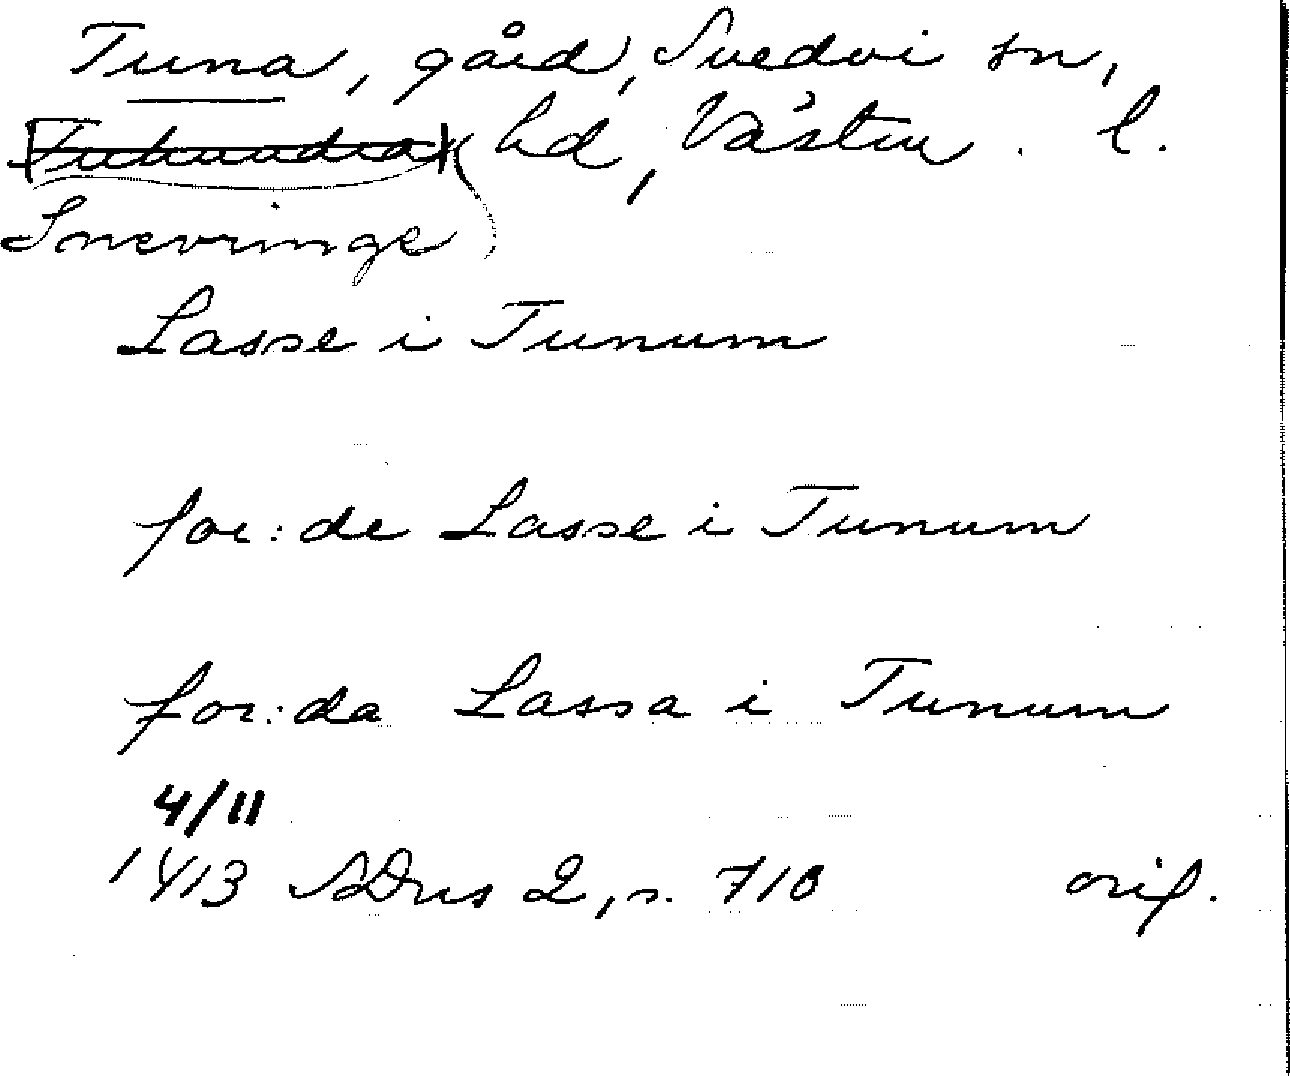 Tuna, gård, Svedvi sn,
Tuhundra hd, Västm. l.
Snevringe
Lasse i Tunum
for:de Lasse i Tunum
for:da Lassa i Tunum
4/11
1413 SDns 2, s. 710 orig.